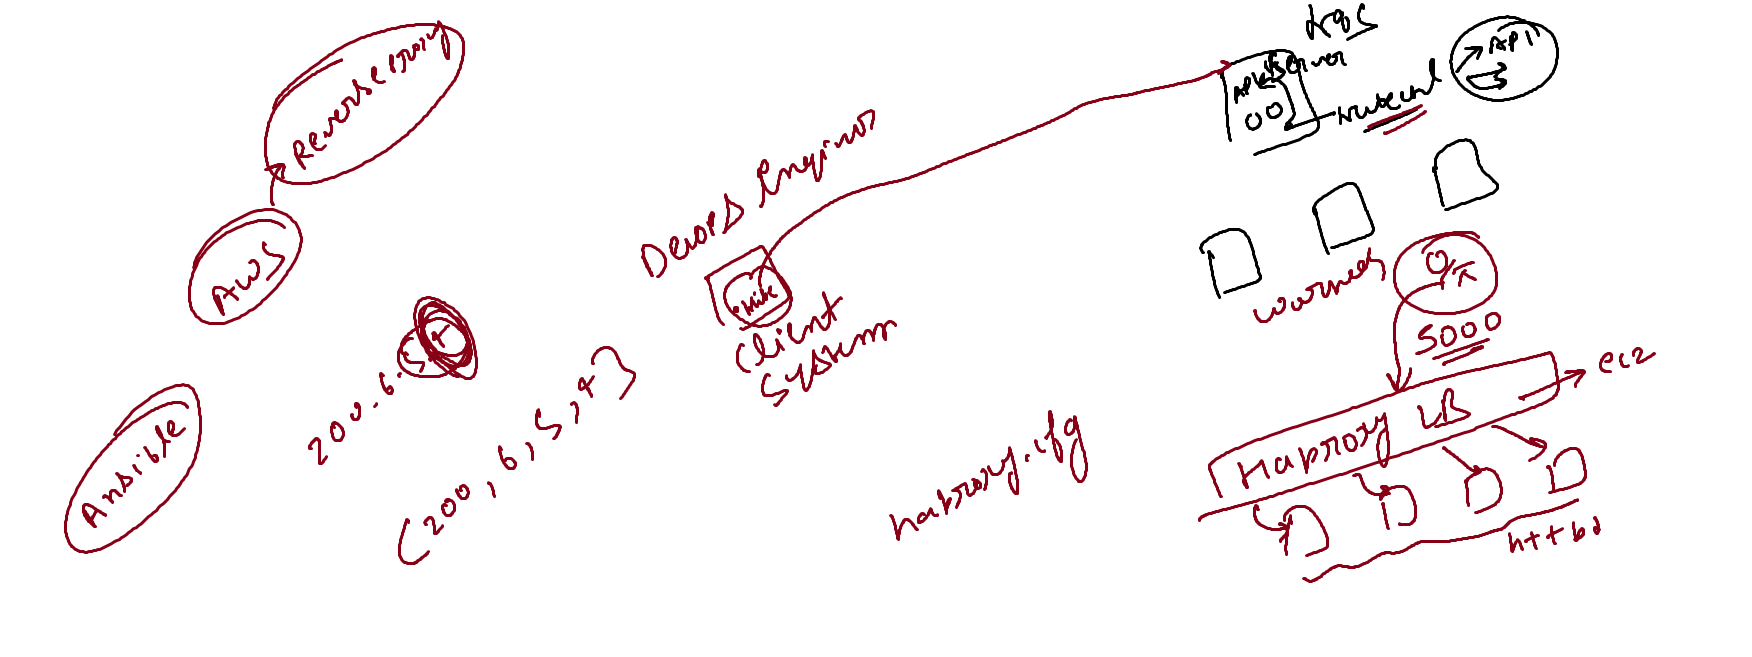 Reverse proxy
AWS
Ansible
200.6.5.4
(200, 6, 5, 4}
DevOPS Engineer
Client
System
haproxy.cfg
K8S
API Server
kubectl
API
workers
5000
Haproxy LB
ec2
httpd